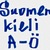 Suomen
kieli
A-Ö